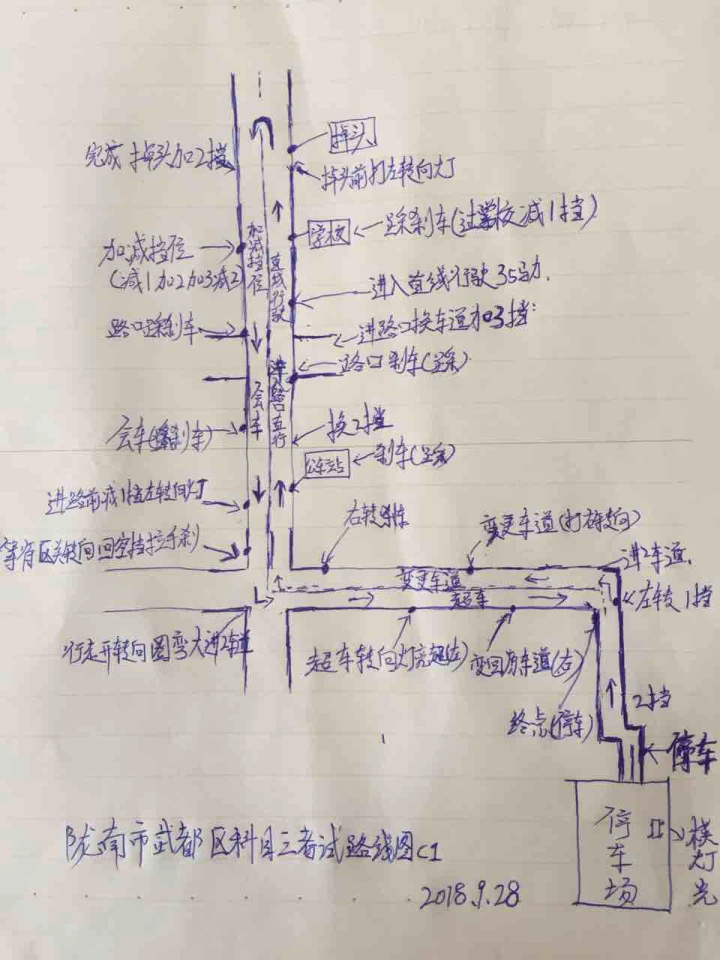 掉头
完成掉头加2挡
掉头前打左转向灯
学校
踩刹车(过学校减1挡)
加减挡位
(减1加2加3减2)
加减挡位
直线行驶
进入直线行驶35马力.
路口踩刹车
进路口换车道加3挡:
路口刹车(踩)
会车
路口直行
会车(踩刹车)
换2挡
公车站
刹车(踩)
进路前减1挡左转向灯
右转刹车
变更车道(打右转向)
进2车道.
变更车道
左转1挡
超车
行走开转向圈弯大进2车道
超车转向灯完超(左)
变回原车道(右)
2挡
终点(停车)
停车
停车场
模灯光
陇南市武都区科目三考试路线图C1
2018.9.28